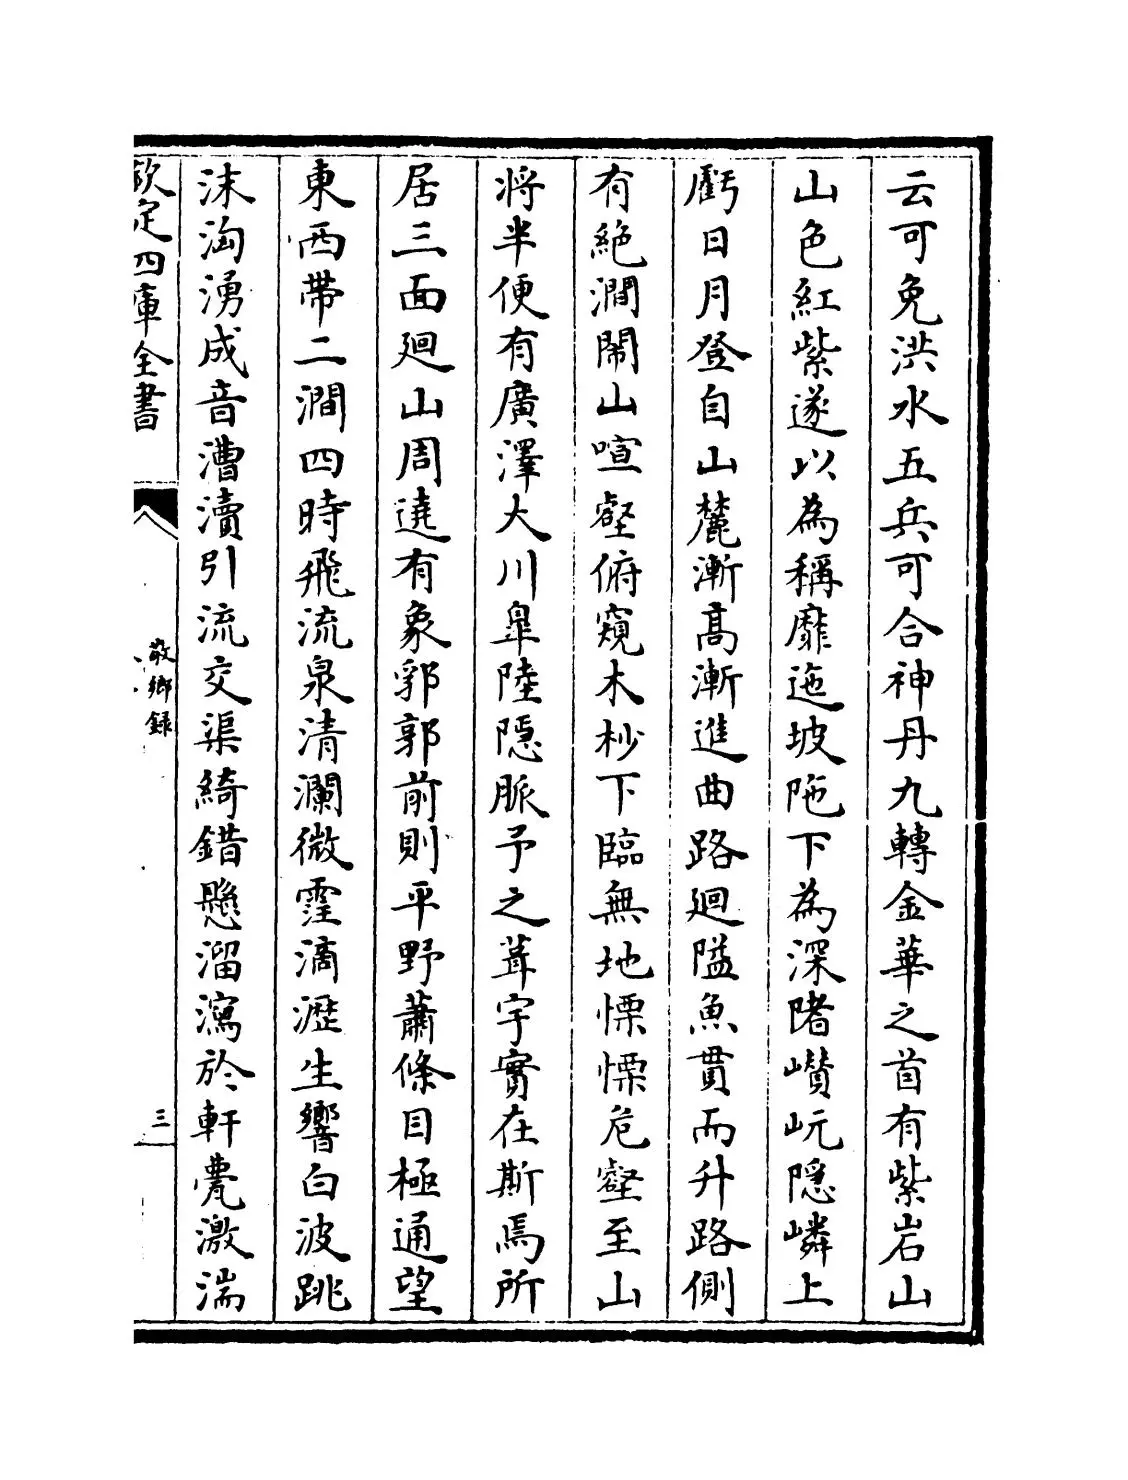 云可免洪水五兵可合神丹九轉金華之首有紫岩山
山色紅紫遂以為稱靡迤坡陁下為深睹巑岏隱嶙上
虧日月登自山麓漸高漸進曲路廻隘魚貫而升路側
有絶澗閙山喧壑俯窺木杪下臨無地慄慄危壑至山
將半便有廣澤大川臯陸隠脈予之葺宇實在斯焉所
居三面廻山周遶有象郛郭前則平野蕭條目極通望
東西帶二澗四時飛流泉清瀾微霔滴瀝生響白波跳
沫洶湧成音漕瀆引流交渠綺錯懸溜瀉於軒甍激湍
欽定四庫全書
敬鄉録
三